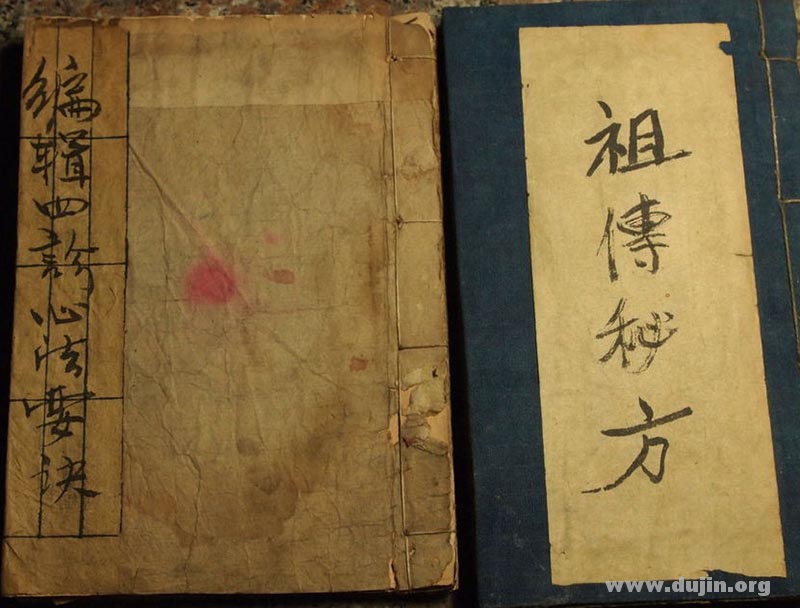 编辑四診心法要訣
祖傳秘方
www.dujin.org